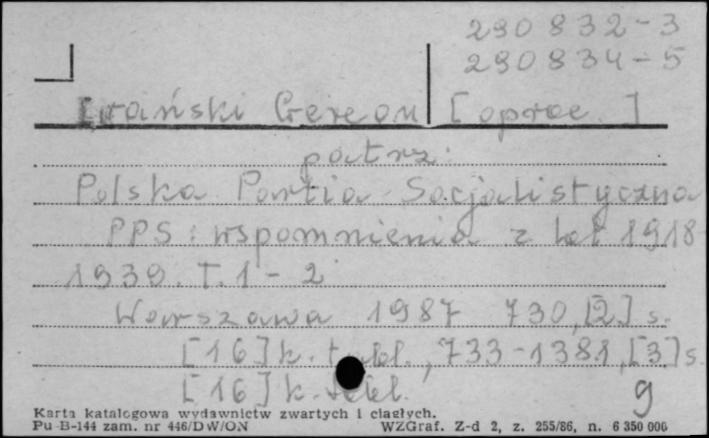 290 832-3
290 834-5
Iwański Gereon [oprac.]
patrz:
Polska Partia Socjalistyczna
PPS: wspomnienia z lat 1918-
1939. T. 1-2
Warszawa 1987 730,[2] s.
[16] k. tabl., 733-1381, [3] s
[16] k. tabl.
9
Karta katalogowa wydawnictw zwartych i ciągłych.
Pu-B-144 zam. nr 446/DW/ON WZGraf. Z-d 2, z. 255/86, n. 6 350 000